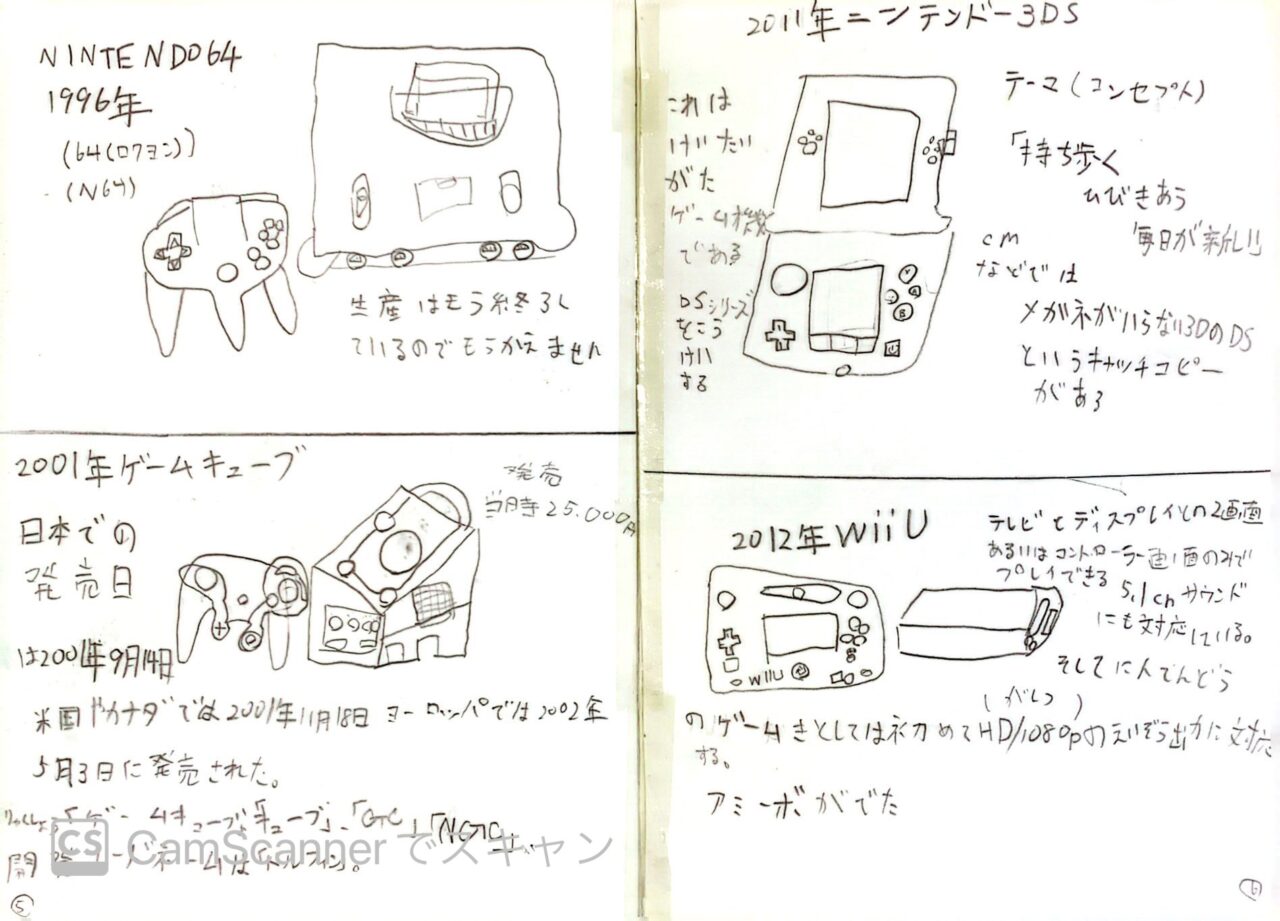 NINTENDO64
1996年
(64(ロクヨン))
(N64)
生産はもう終了し
ているのでもうかえません
2001年ゲームキューブ
発売
当時25.000円
日本での
発売日
は2001年9月14日
米国やカナダでは2001年11月18日 ヨーロッパでは2002年
5月3日に発売された。
「ゲームキューブ」「キューブ」、「GC」「NGC」
開発 ドルフィン。
CS CamScanner でスキャン
5
2011年ニンテンドー3DS
これは
けいたい
がた
ゲーム機
である
DSシリーズ
をこう
けい
する
テーマ(コンセプト)
「持ち歩く
ひびきあう
毎日が新しい」
cm
などでは
メガネがいらない3DのDS
というキャッチコピー
がある
Y
A
B
2012年WiiU
WiiU
テレビとディスプレイとの2画面
あるいはコントローラー画面のみで
プレイできる
5.1cnサウンド
にも対応している。
そしてにんてんどう
(がしつ)
のゲームきとしては初めてHD/1080pのえいぞう出力に対応
する。
アミーボがでた
6